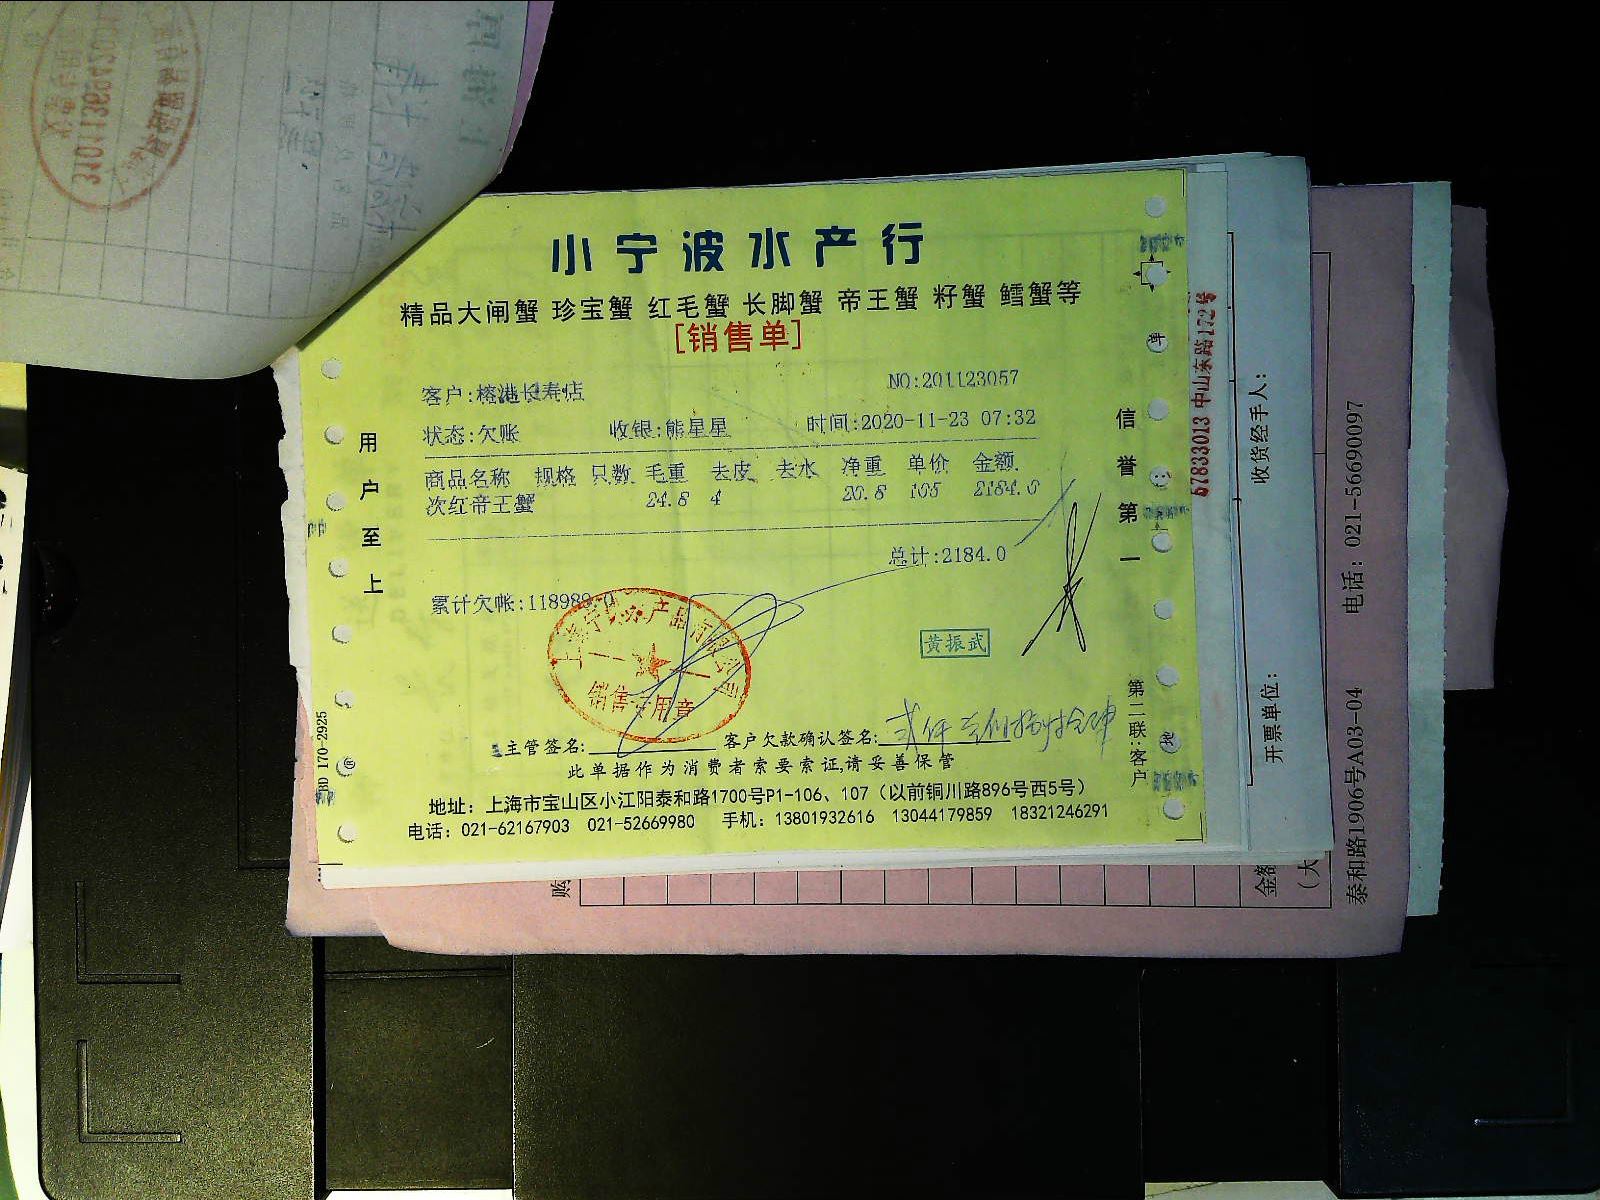 小宁波水产行
精品大闸蟹 珍宝蟹 红毛蟹 长脚蟹 帝王蟹 籽蟹 鳕蟹等
[销售单]
客户:榕港长寿店 NO:201123057
状态:欠账 收银:熊星星 时间:2020-11-23 07:32
商品名称 规格 只数 毛重 去皮 去水 净重 单价 金额
次红帝王蟹 24.8 4 20.8 105 2184.0
总计:2184.0
累计欠帐:118989.0
销售专用章
黄振武
主管签名: 客户欠款确认签名:
此单据作为消费者索要索证,请妥善保管
地址：上海市宝山区小江阳泰和路1700号P1-106、107（以前铜川路896号西5号）
电话：021-62167903 021-52669980 手机：13801932616 13044179859 18321246291
用户至上
信誉第一
第二联:客户
BD 170-2925
67833013 中山东路172号
收货经手人：
开票单位：
泰和路1906号A03-04 电话：021-56690097
金额
（大
购